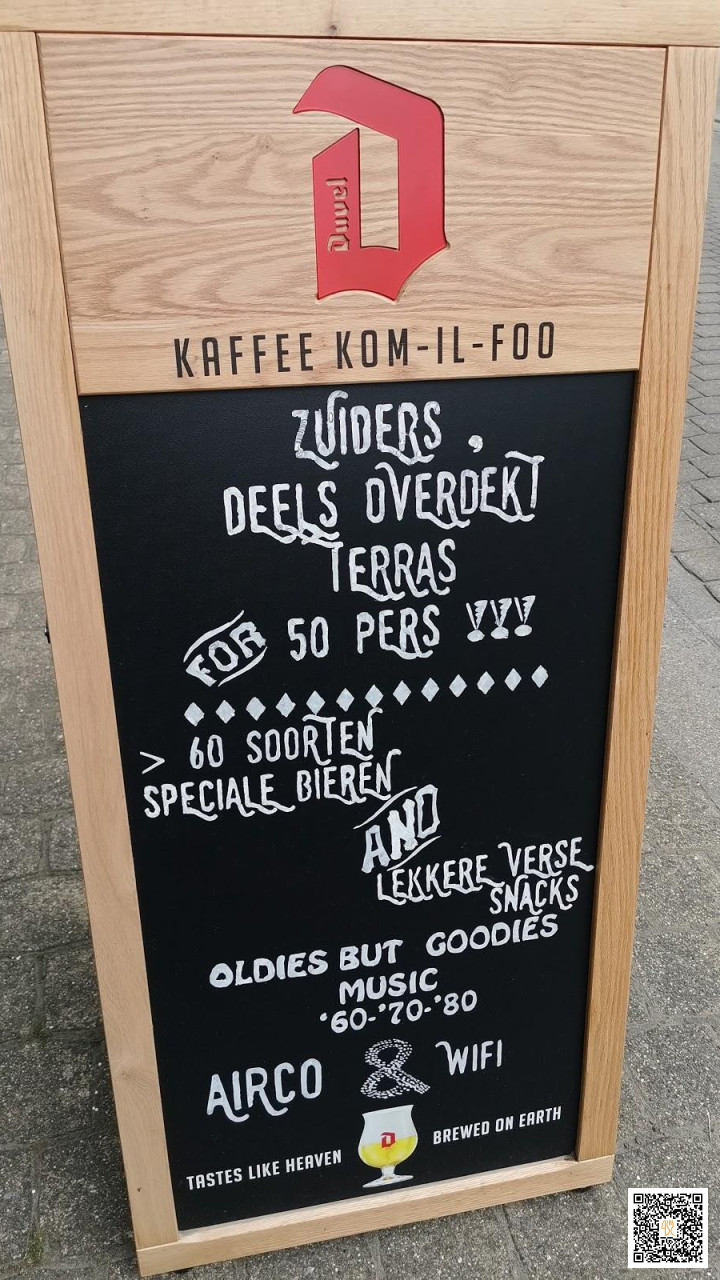 Duvel
KAFFEE KOM-IL-FOO
ZUIDERS ,
DEELS OVERDEKT
TERRAS
FOR 50 PERS !!!
> 60 SOORTEN
SPECIALE BIEREN
AND
LEKKERE VERSE
SNACKS
OLDIES BUT GOODIES
MUSIC
'60-'70-'80
AIRCO & WIFI
TASTES LIKE HEAVEN BREWED ON EARTH